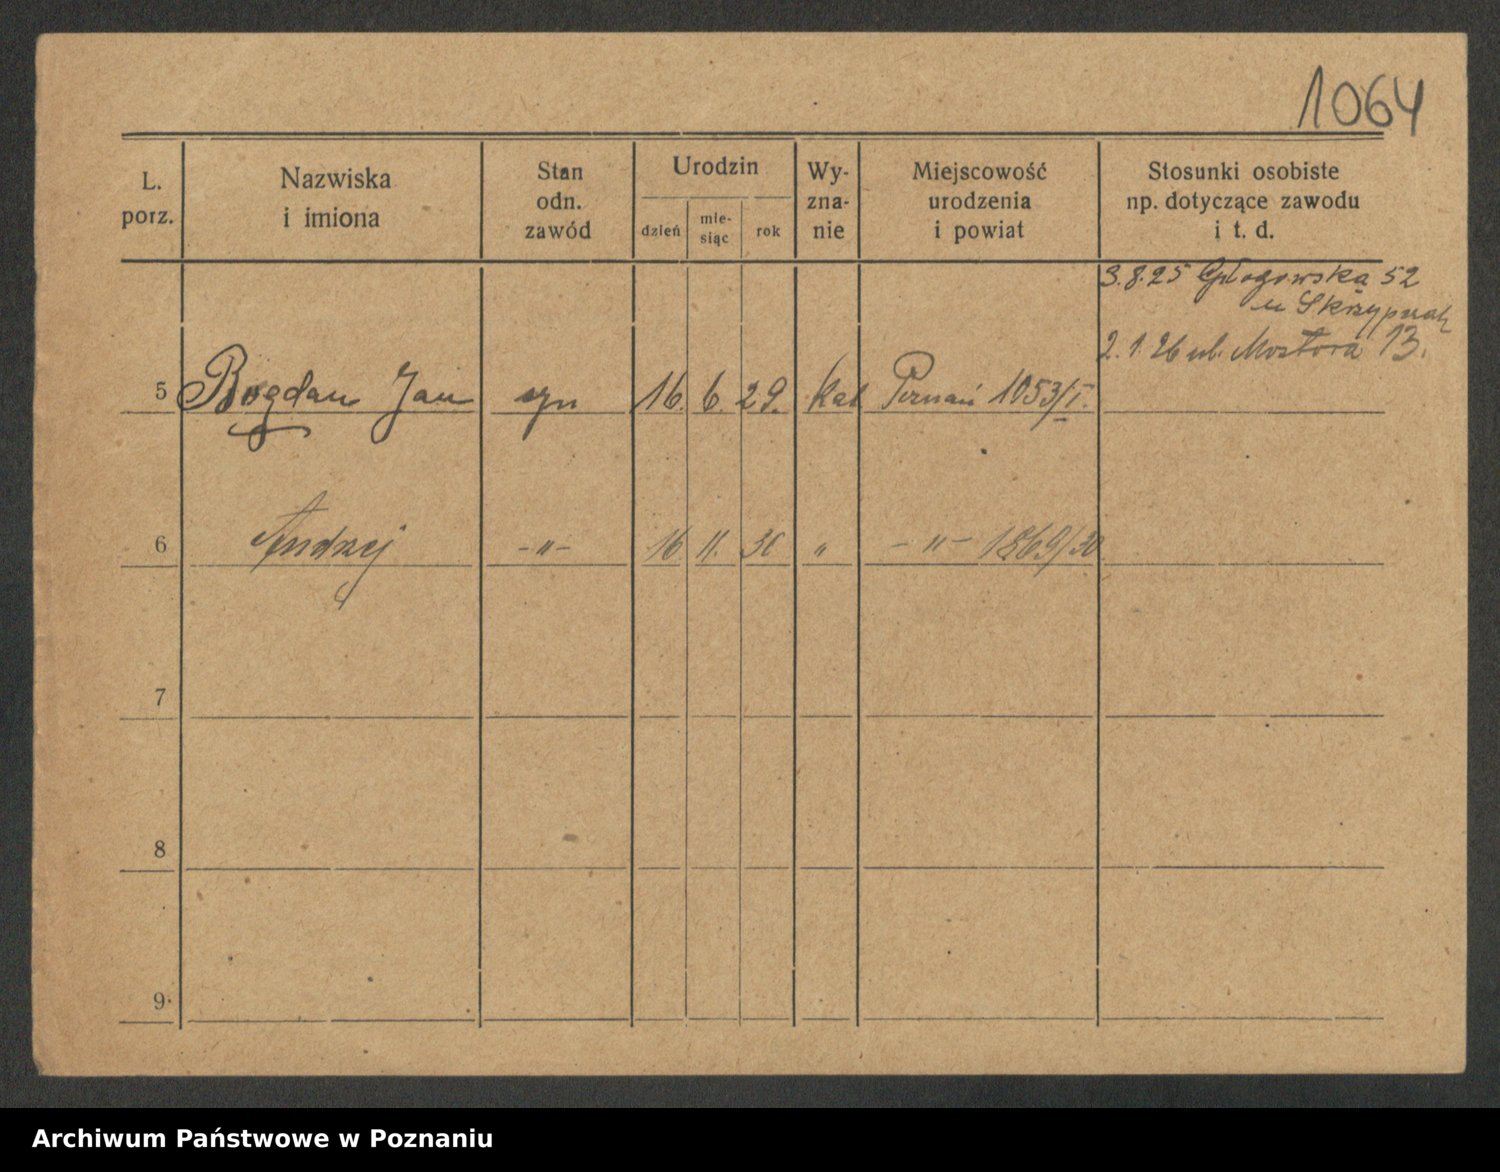 1064
L. porz.
Nazwiska i imiona
Stan odn. zawód
Urodzin
dzień
mie-
siąc
rok
Wy-
zna-
nie
Miejscowość urodzenia i powiat
Stosunki osobiste
np. dotyczące zawodu
i t. d.
3.8.25 Głogowska 52
u Skrzypnak
2.1.26 ul. Mostowa 13.
5 Bogdan Jan syn 16. 6. 29. kat Poznań 1053/I.
6 Andrzej -„- 16 11. 30 „ -„- 1869/30
7
8
9
Archiwum Państwowe w Poznaniu